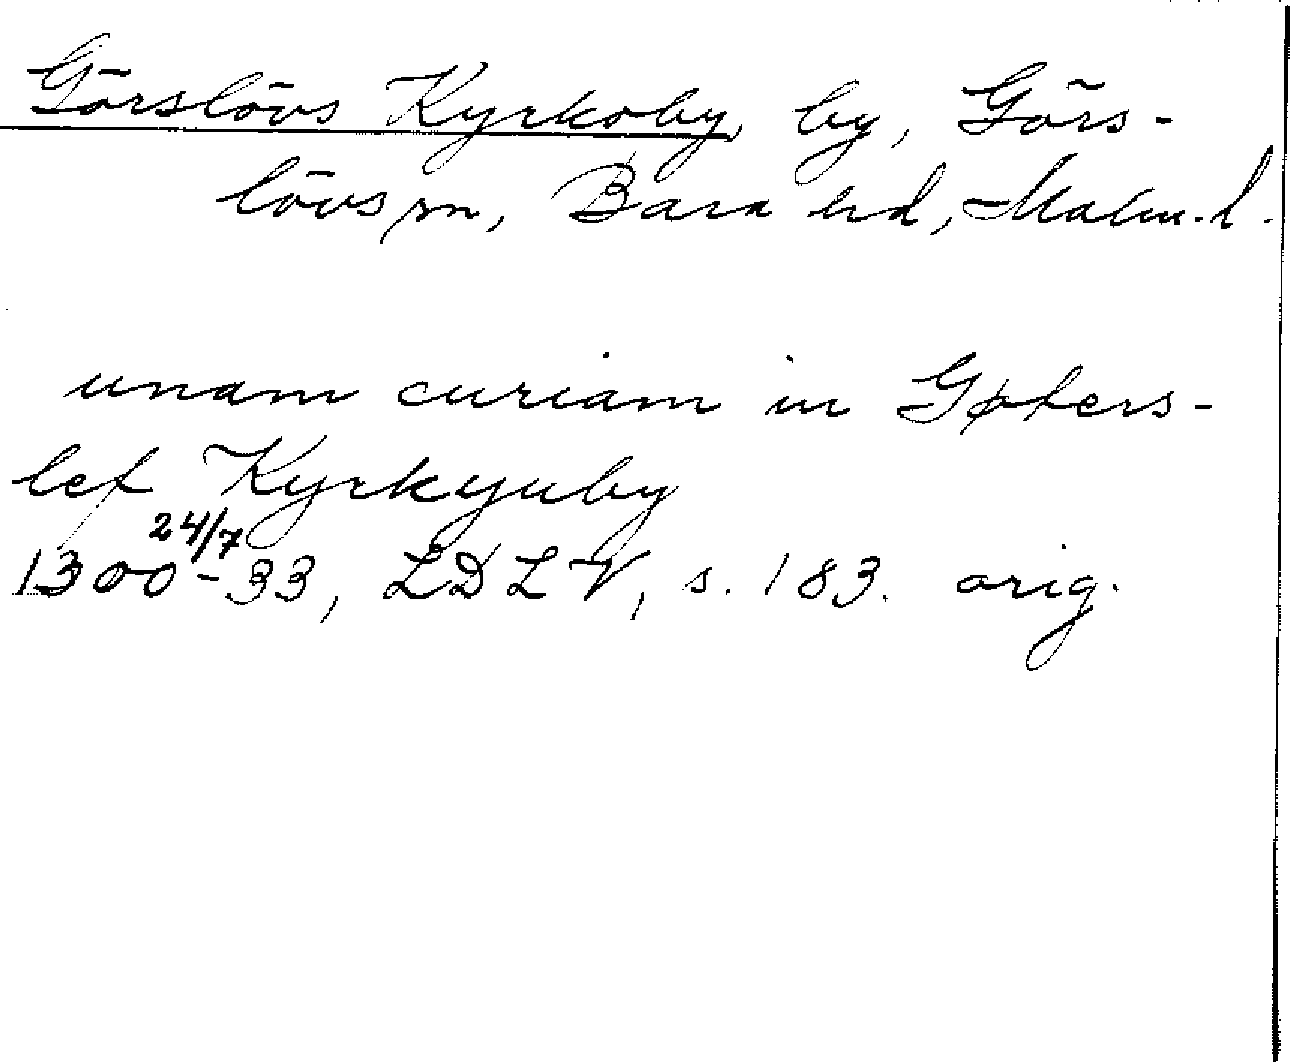 Görslövs Kyrkoby, by, Görs-
lövs sn, Bara hd, Malm. l.
unam curiam in Gøters-
lef Kyrkyuby
24/7
1300-33, LDLV, s. 183. orig.